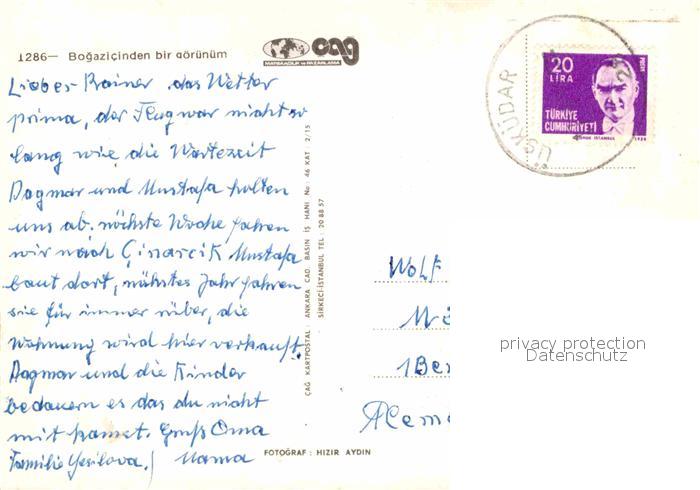 1286— Boğaziçinden bir görünüm
çağ
MATBAACILIK ve PAZARLAMA
Lieber Rainer das Wetter
prima, der Flug war nicht so
lang wie die Wartezeit
Dagmar und Mustafa holten
uns ab, nächste Woche fahren
wir nach Çinarcik Mustafa
baut dort, nähstes Jahr fahren
sie für immer rüber, die
Wohnung wird hier verkauft.
Dagmar und die Kinder
bedauern es das du nicht
mit kamst. Gruß Oma
Familie Yesilova. Mama
ÇAĞ KARTPOSTAL : ANKARA CAD. BASIN İŞ HANI No: 46 KAT 2/15
SİRKECİ-İSTANBUL TEL : 20 88 57
FOTOĞRAF : HIZIR AYDIN
ÜSKÜDAR
20
LİRA
TÜRKİYE
CUMHURİYETİ
Wolf
1 Ber
Alem
privacy protection
Datenschutz